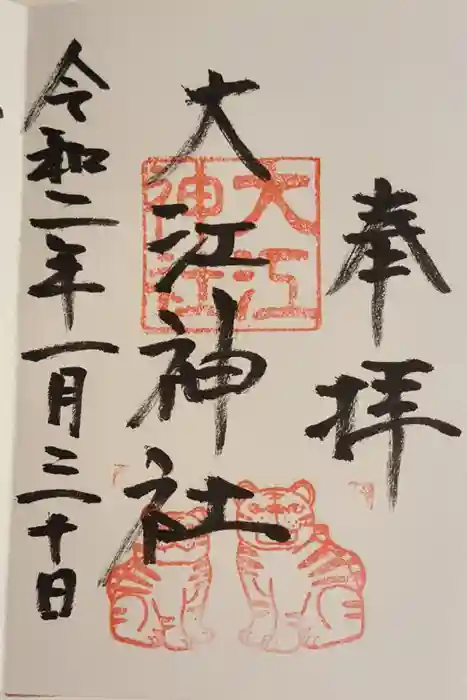 奉拝
大江神社
大江神社
令和二年一月三十日